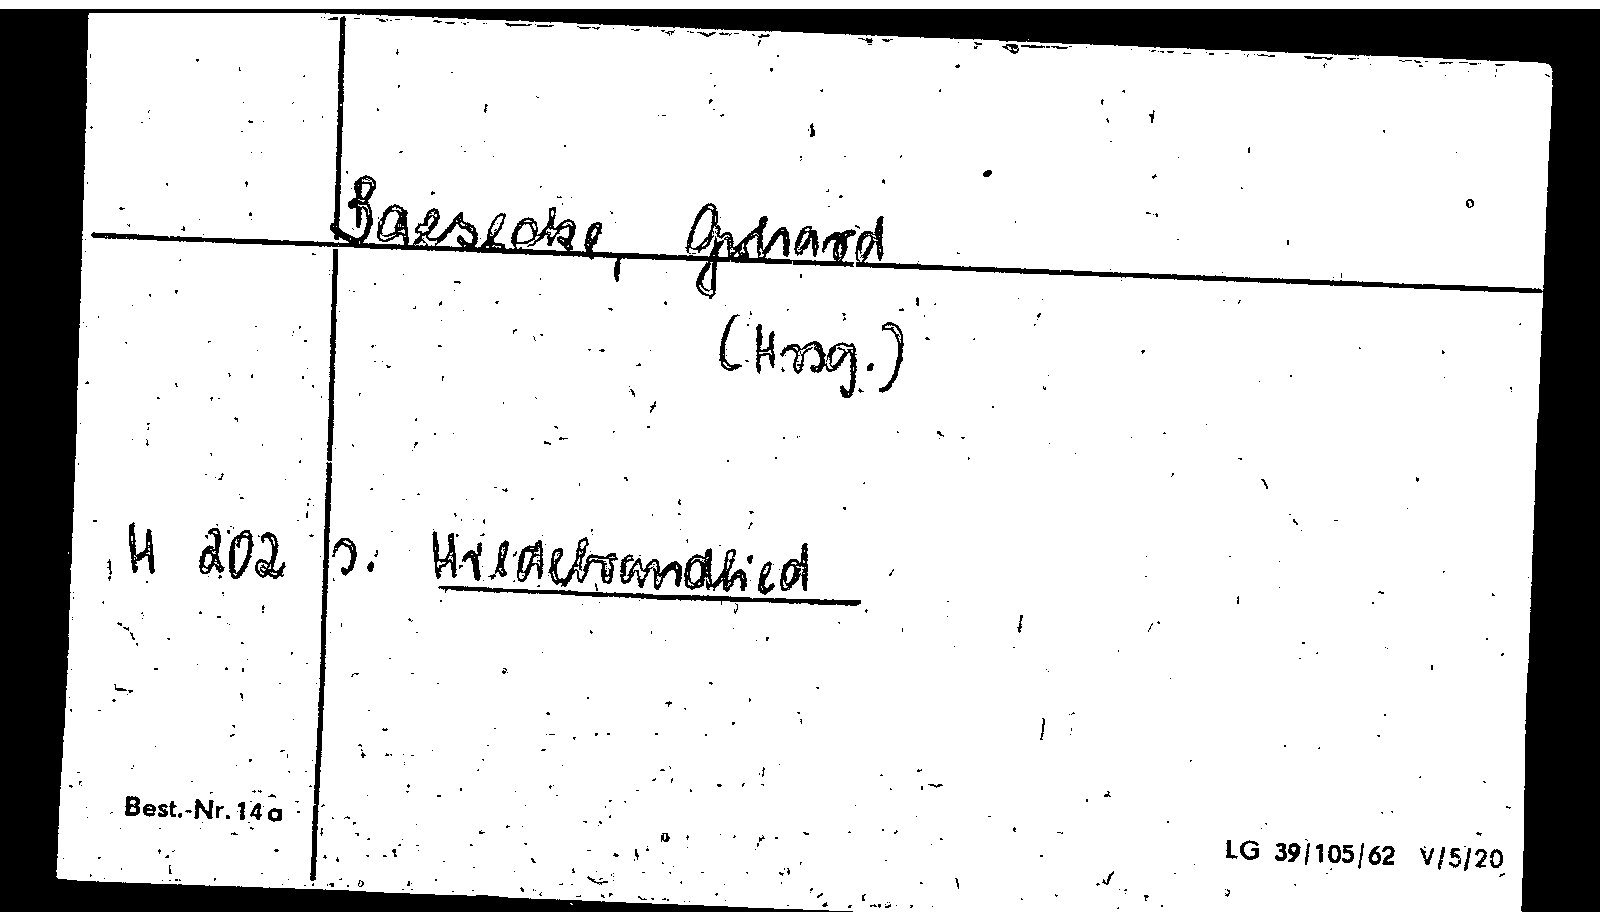 Baesecke, Gerhard
(Hrsg.)
H 202 s. Hildebrandlied
Best.-Nr. 14a
LG 39/105/62 V/5/20